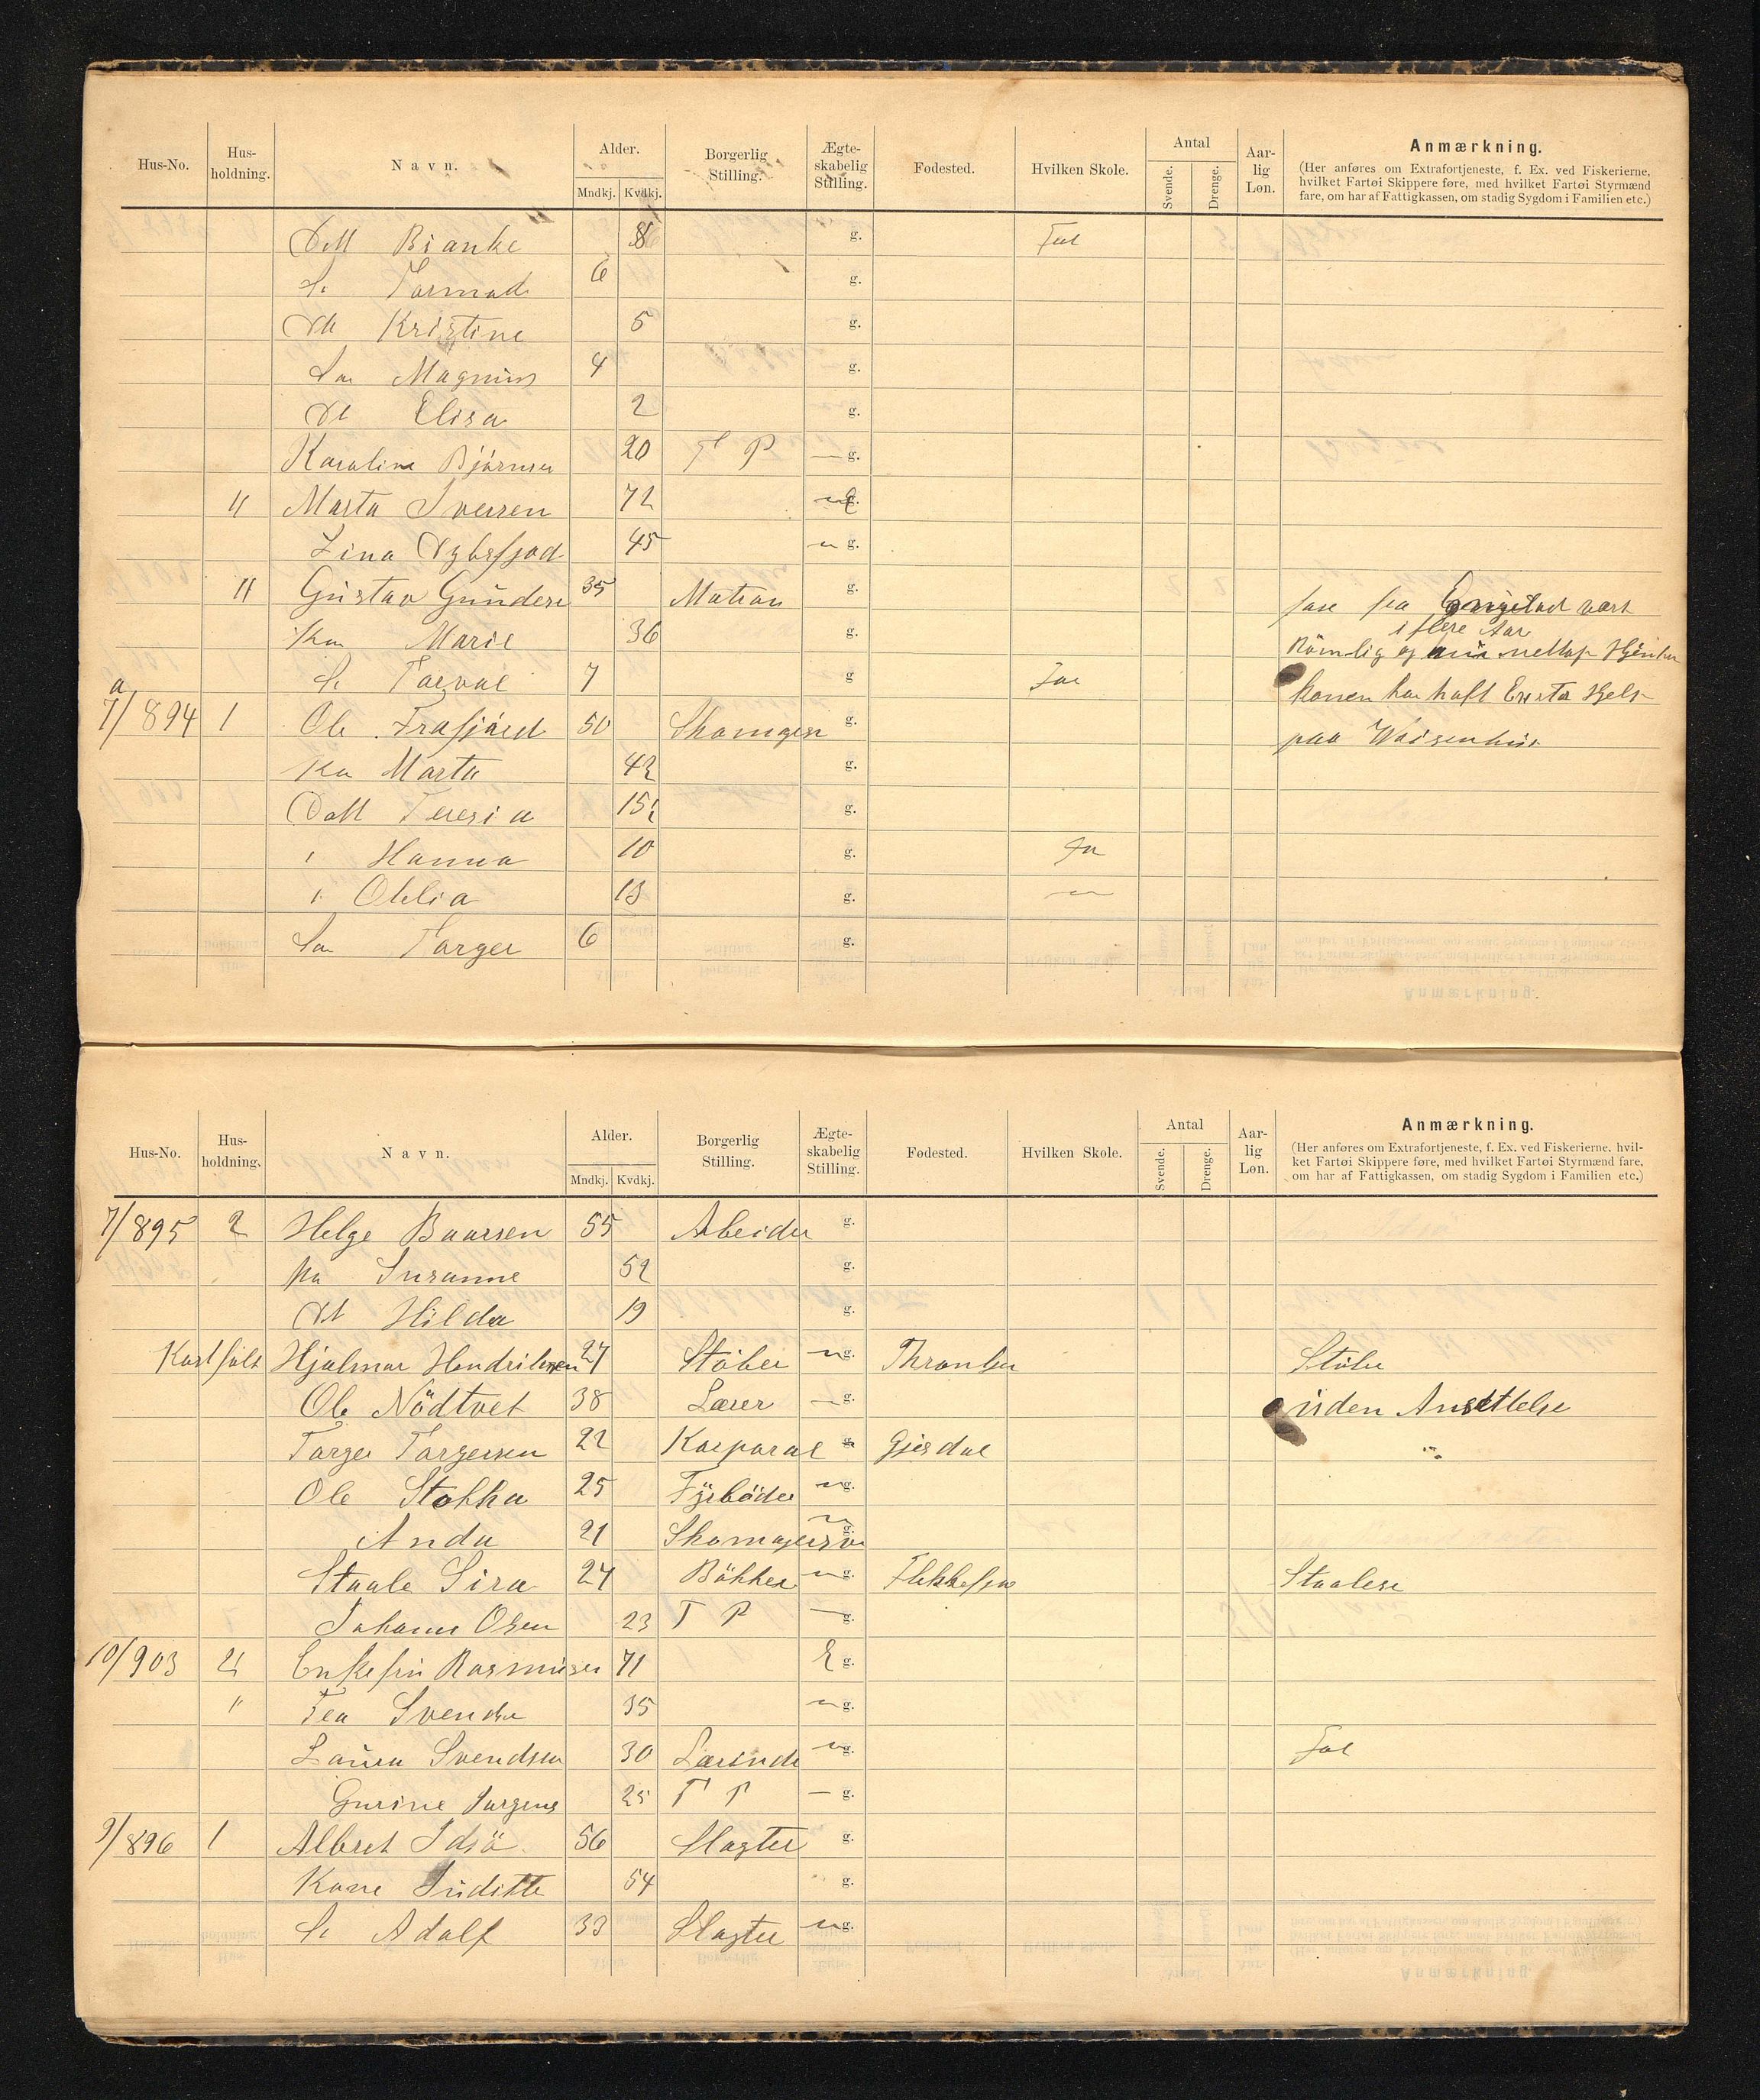 Hus-No. Hus-holdning. Navn. Alder. Mndkj. Kvdkj. Borgerlig Stilling. Ægte-skabelig Stilling. Fødested. Hvilken Skole. Antal Svende. Drenge. Aar-lig Løn. Anmærkning.
(Her anføres om Extrafortjeneste, f. Ex. ved Fiskerierne,
hvilket Fartøi Skippere føre, med hvilket Fartøi Styrmænd
fare, om har af Fattigkassen, om stadig Sygdom i Familien etc.)
Dtt Bianke 8 g.
S. Tormod 6 g.
Dtt Kristine 5 g.
Søn Magnus 4 g.
Dt Elisa 2 g.
Karoline Bjørnsen 20 T P — g.
" Marta Iversen 72 E
Lina 45 u g.
" Gustav Gunderse 35 Matros g.
Kon Marie 36 g.
i flere Aar
S. Torval 7 g
konen har haft
a
7/894 1 Ole Frafjord 50 Skomager g.
paa Waisenhus
Kon Marta 42 g.
Datt Teresia 15 g.
" Hanna 10 g. Ja
" Otelia 13 g. —
Søn Torger 6 g.
Hus-No. Hus-holdning. Navn. Alder. Mndkj. Kvdkj. Borgerlig Stilling. Ægte-skabelig Stilling. Fødested. Hvilken Skole. Antal Svende. Drenge. Aar-lig Løn. Anmærkning.
(Her anføres om Extrafortjeneste, f. Ex. ved Fiskerierne, hvil-
ket Fartøi Skippere føre, med hvilket Fartøi Styrmænd fare,
om har af Fattigkassen, om stadig Sygdom i Familien etc.)
7/895 2 Helge Baarsen 55 Arbeider g.
Ko Susanne 52 g.
Dt Hilda 19 g.
Hjalmar Hendriksen 27 Støber u g. Støber
Ole Nödtvet 38 Lærer — g. uden Ansettelse
Torger Torgersen 22 Korporal g. Gjesdal "
Ole Stokka 25 Fyrbøder u g.
Anda 21 Skomagersv u g.
Staale Sira 24 Bökker u g.
Johanne Olsen 23 T P — g.
10/903 Enkefru Rasmusen 71 E g.
" Tea Svendsen 35 u g.
Laura Svendsen 30 Lærinde u g.
Gurine 25 T P — g.
9/896 1 Albret Idsö 56 Slagter g.
Kone Juditte 54 g.
S. Adolf 33 Slagter u g.